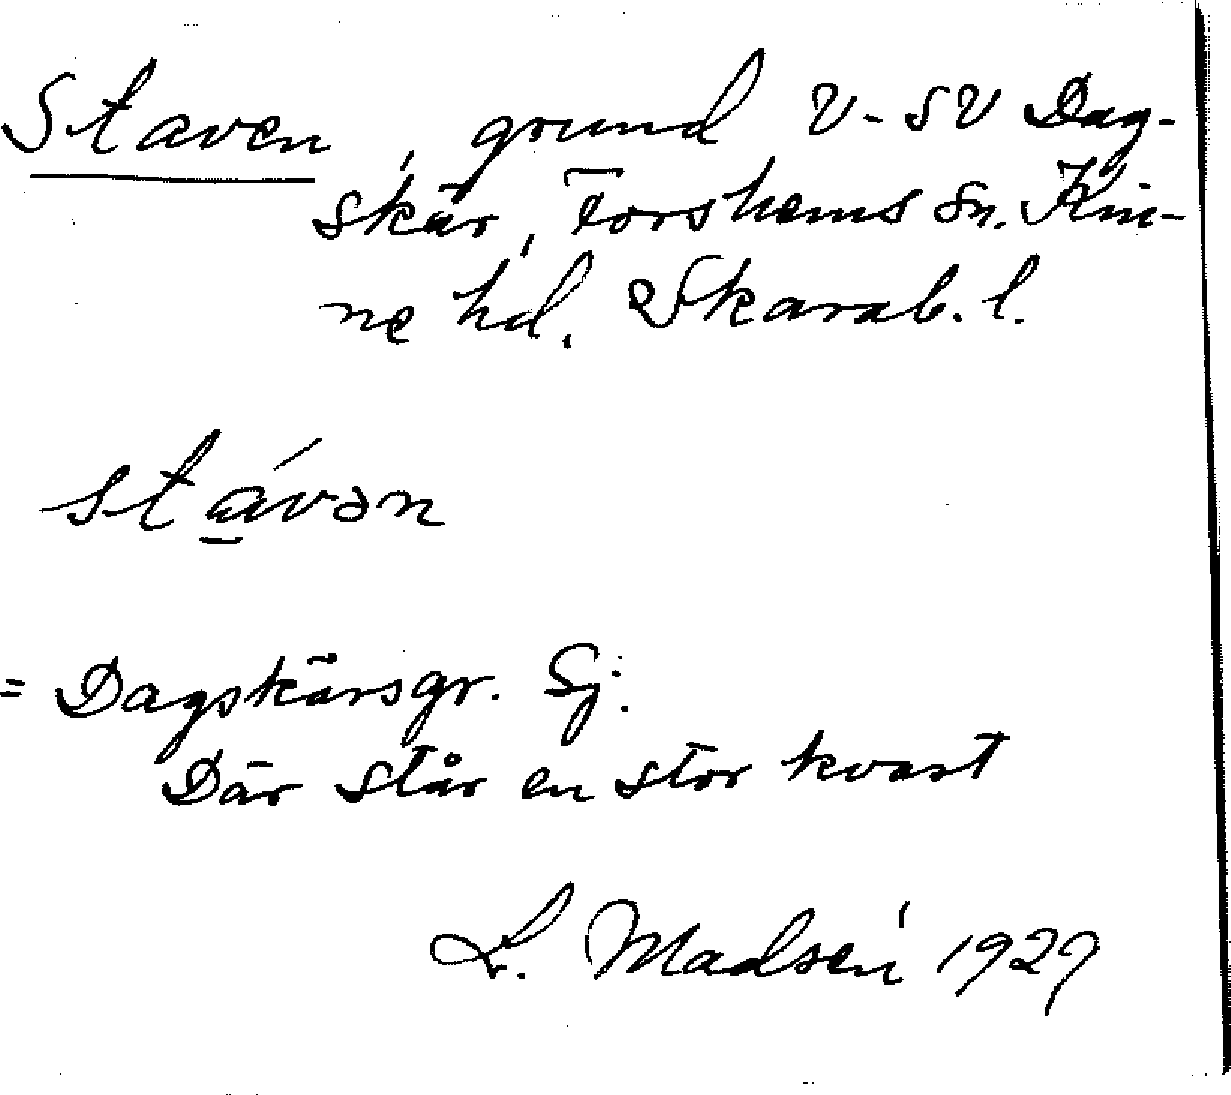 Staven, grund V-SV Dag-
skär, Forshems sn. Kin-
ne hd. Skarab. l.
stávən
= Dagskärsgr. Sj.
Där står en stor kvast
L. Madsén 1927